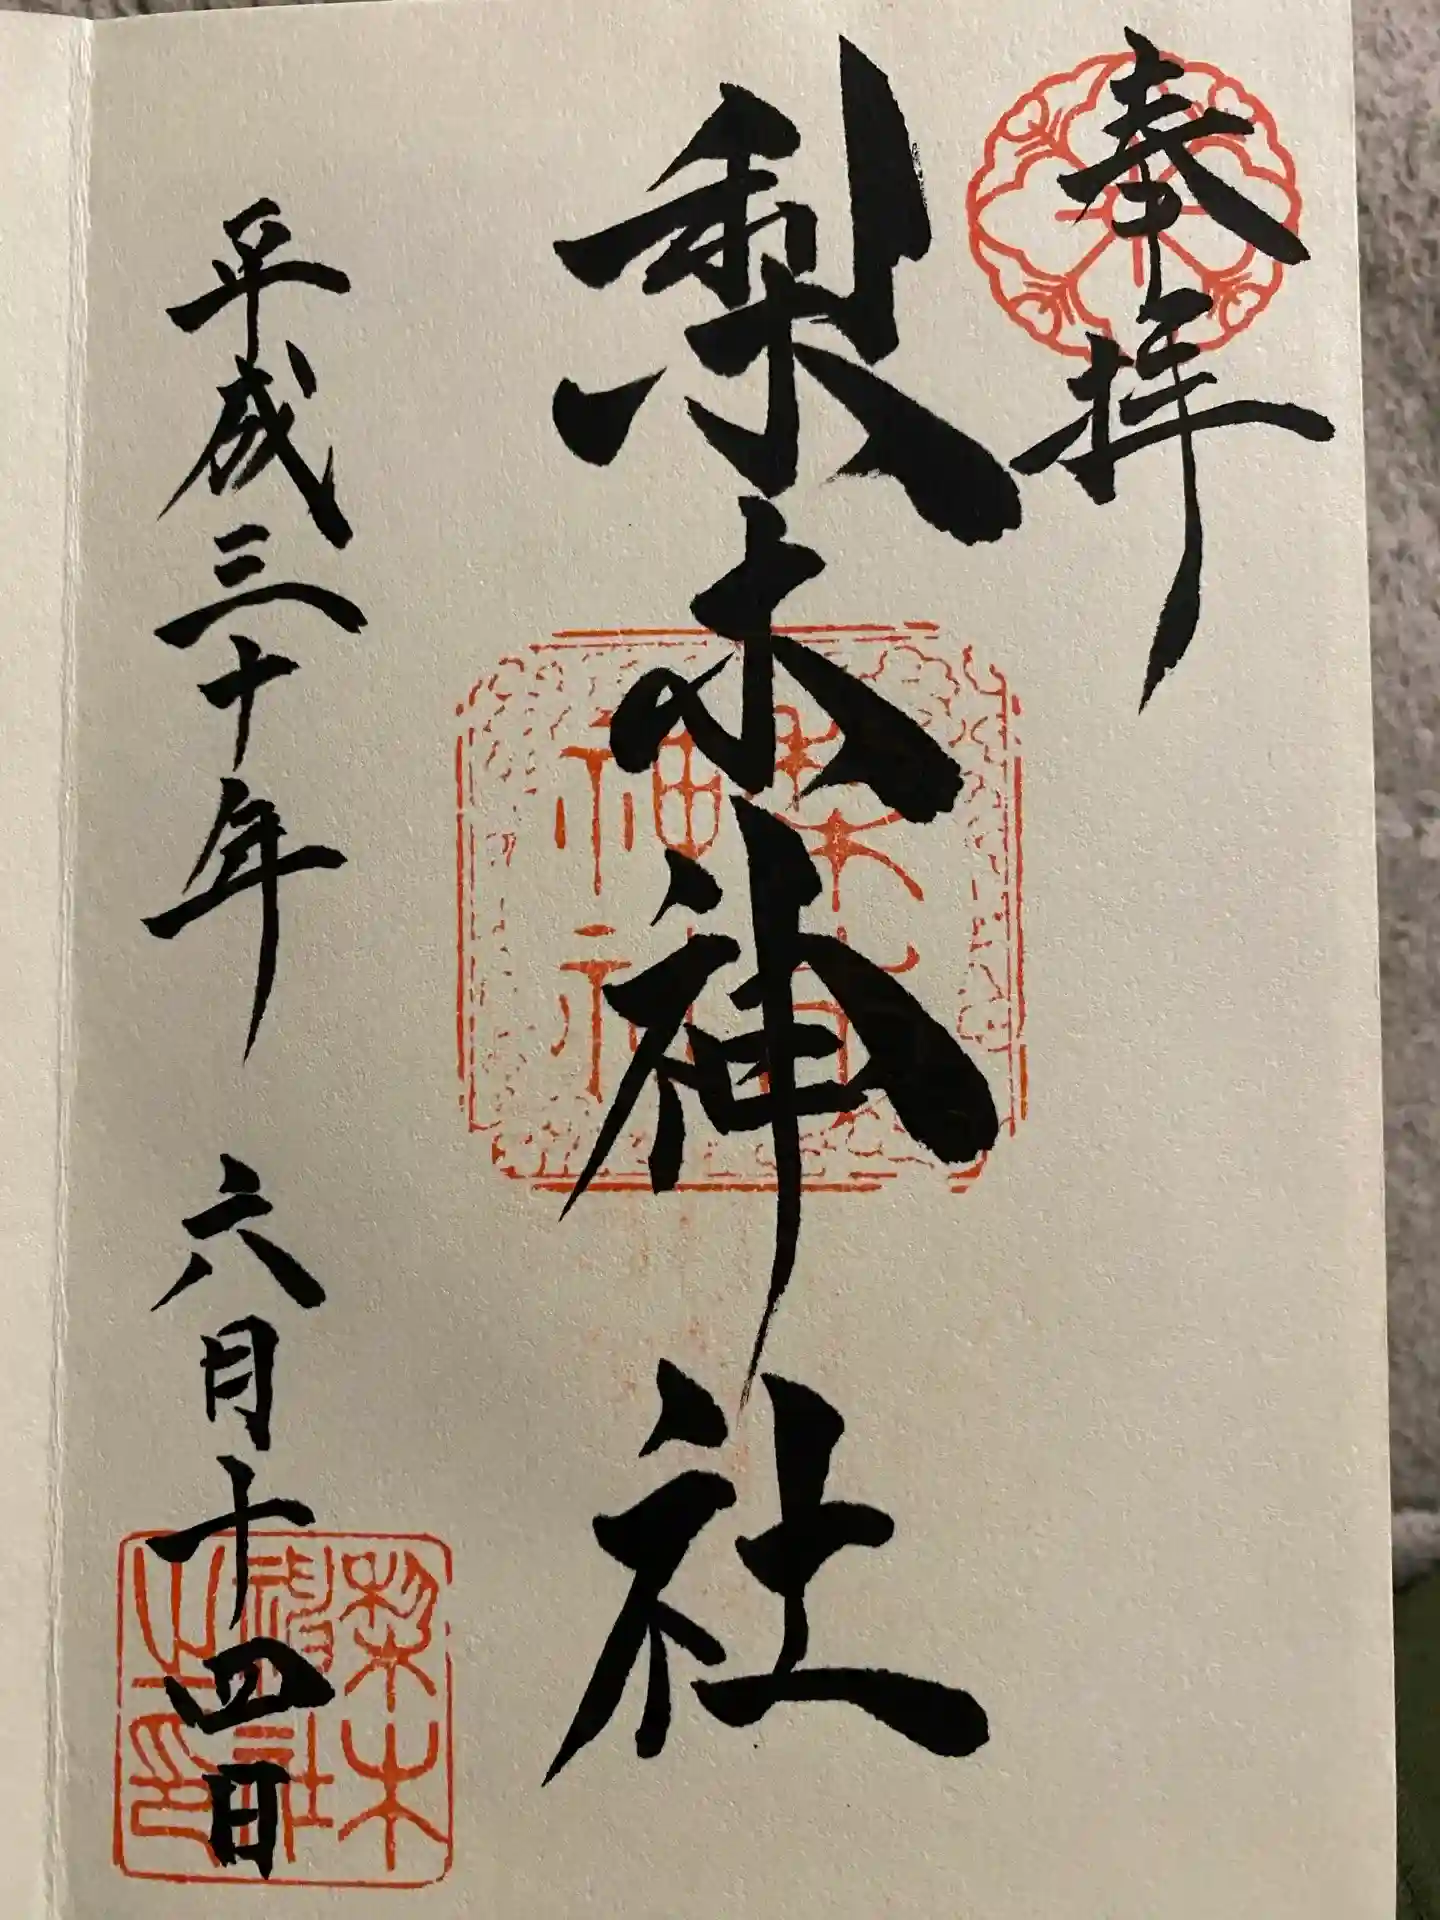 奉拝
梨木神社
平成三十年 六月十四日
梨木
神社
之印